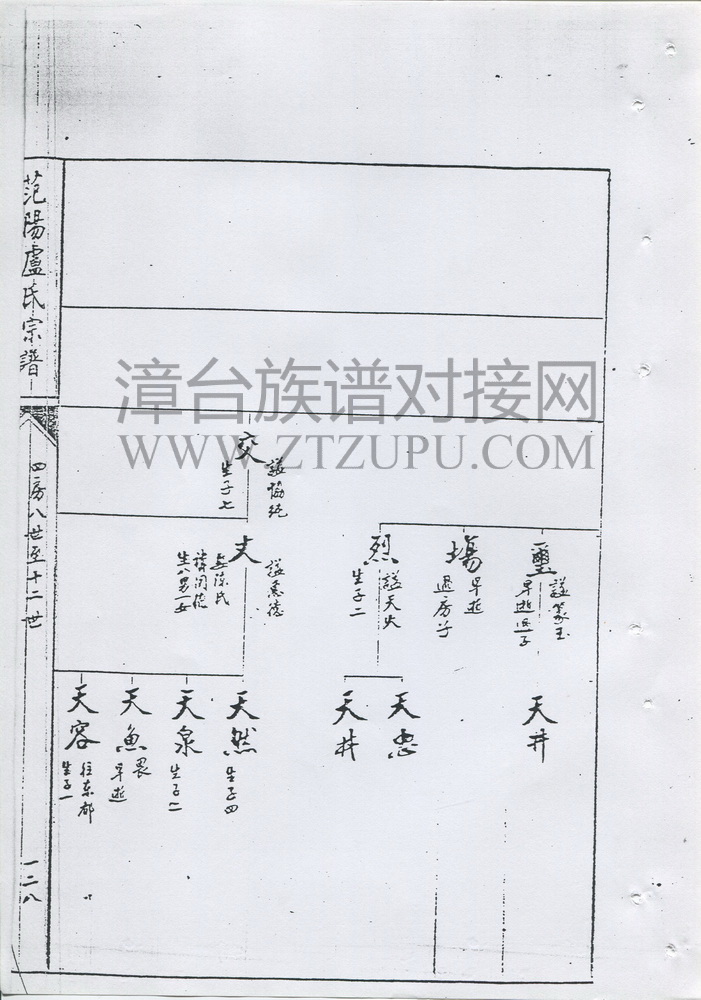 范陽盧氏宗譜
四房八世至十二世
一二八
漳台族谱对接网
WWW.ZTZUPU.COM
璽
諡篆玉
早逝過子
天井
場
早逝
過房子
烈
諡天火
生子二
天忠
天井
交
諡協純
生子七
丈
諡惠德
生八男一女
天然
生子四
天泉
生子二
天魚
早逝
天容
往东都
生子一